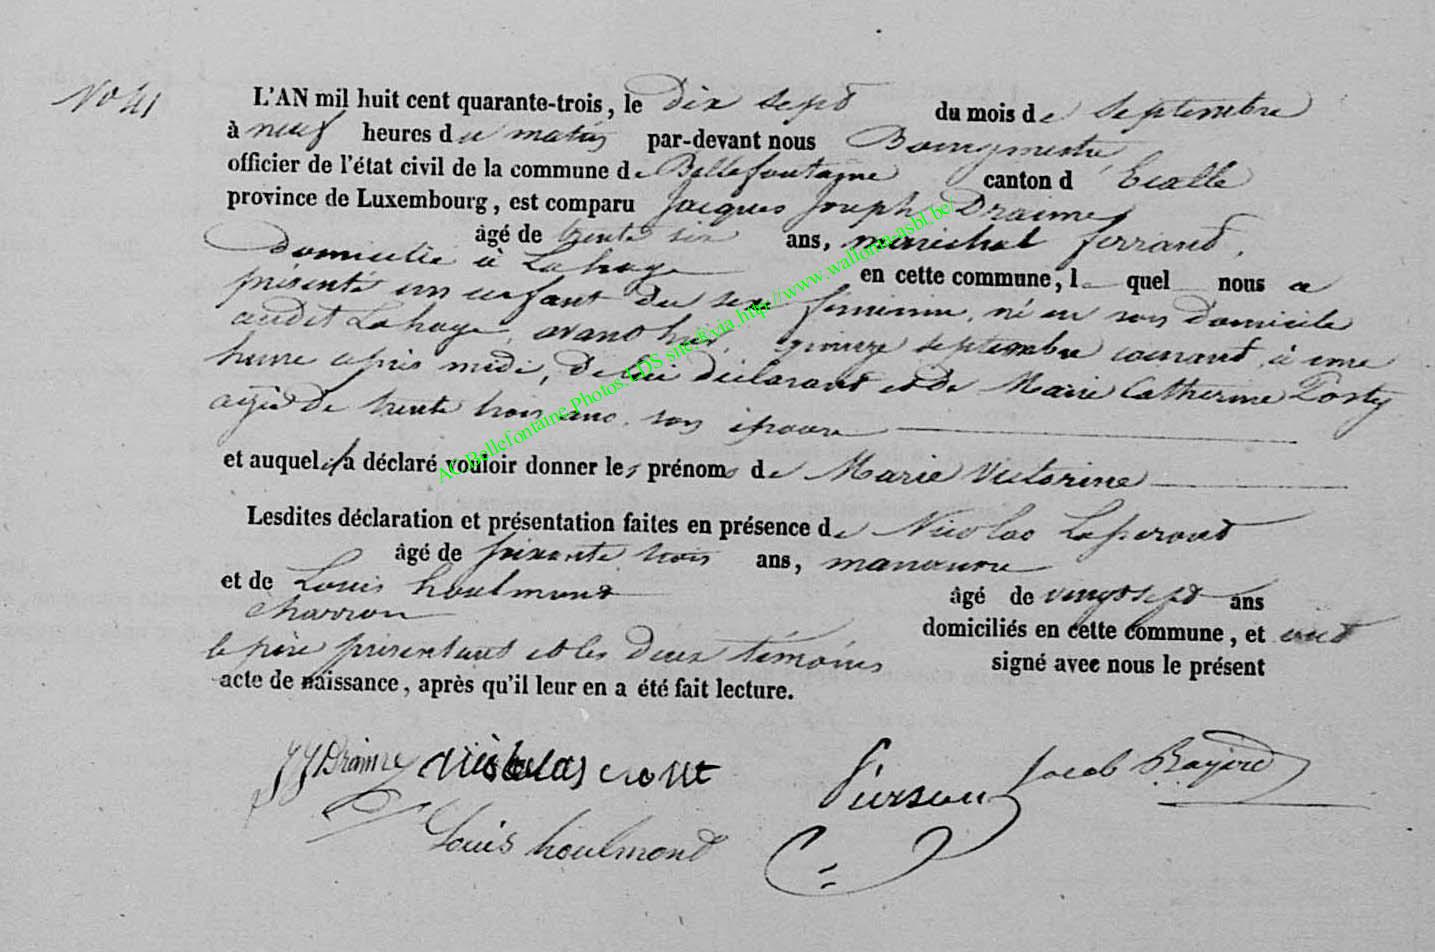 No 41
L'AN mil huit cent quarante-trois, le dix sept du mois de septembre
à neuf heures du matin par-devant nous Bourgmestre
officier de l'état civil de la commune de Bellefontaine canton d' Etalle
province de Luxembourg, est comparu Jacques Joseph Draime
âgé de trente six ans, maréchal ferrant,
domicilié à Lahage en cette commune, lequel nous a
présenté un enfant du sexe féminin, né en son domicile
audit Lahage, avant hier, quinze septembre courant, à une
heure après midi, de lui déclarant et de Marie Catherine
agée de trente trois ans, son épouse
et auquel il a déclaré vouloir donner les prénoms de Marie Victorine
Lesdites déclaration et présentation faites en présence de Nicolas
âgé de soixante trois ans, manœuvre
et de Louis houlmont âgé de vingt sept ans
charron
domiciliés en cette commune, et ont
le père présentant et les deux témoins signé avec nous le présent
acte de naissance, après qu'il leur en a été fait lecture.
JJ Draime Nicolas Pierson Jacob
Louis houlmont
AC Bellefontaine,Photos LDS site & via http://www.wallonia-asbl.be/